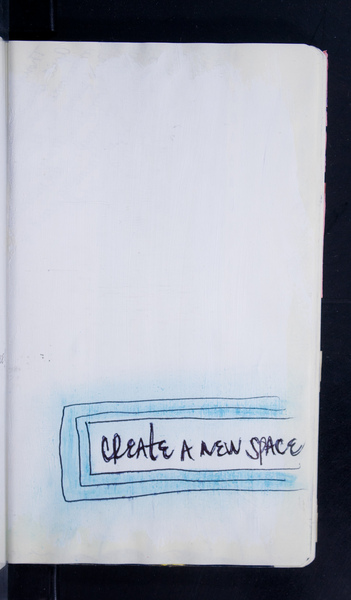 CREATE A NEW SPACE